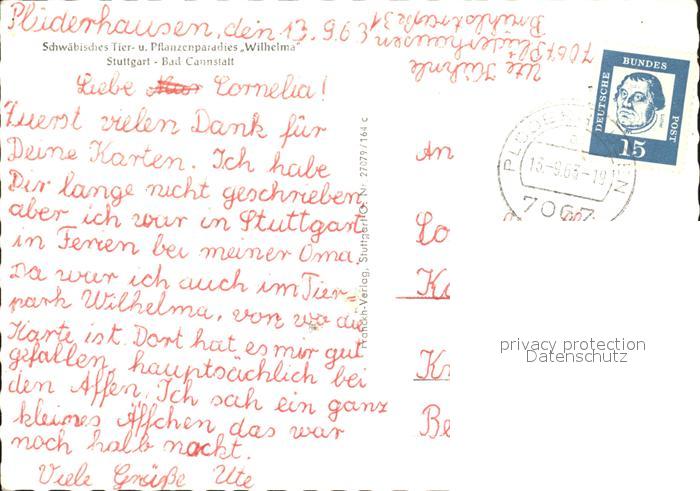 Plüderhausen, den 13.9.63
Schwäbisches Tier- u. Pflanzenparadies „Wilhelma"
Stuttgart - Bad Cannstatt
Liebe Cornelia!
Zuerst vielen Dank für
Deine Karten. Ich habe
Dir lange nicht geschrieben,
aber ich war in Stuttgart
in Ferien bei meiner Oma.
Da war ich auch im Tier-
park Wilhelma, von wo die
Karte ist. Dort hat es mir gut
gefallen, hauptsächlich bei
den Affen. Ich sah ein ganz
kleines Äffchen, das war
noch halb nackt.
Viele Grüße Ute
Franckh-Verlag, Stuttgart-O. Nr. 27079/164 c
Ute Kühnle
7067 Plüderhausen
Brühlstraße 31
DEUTSCHE BUNDESPOST
15
13.-9.63.-18
7067
An
Co
Ka
Kr
Be
privacy protection
Datenschutz